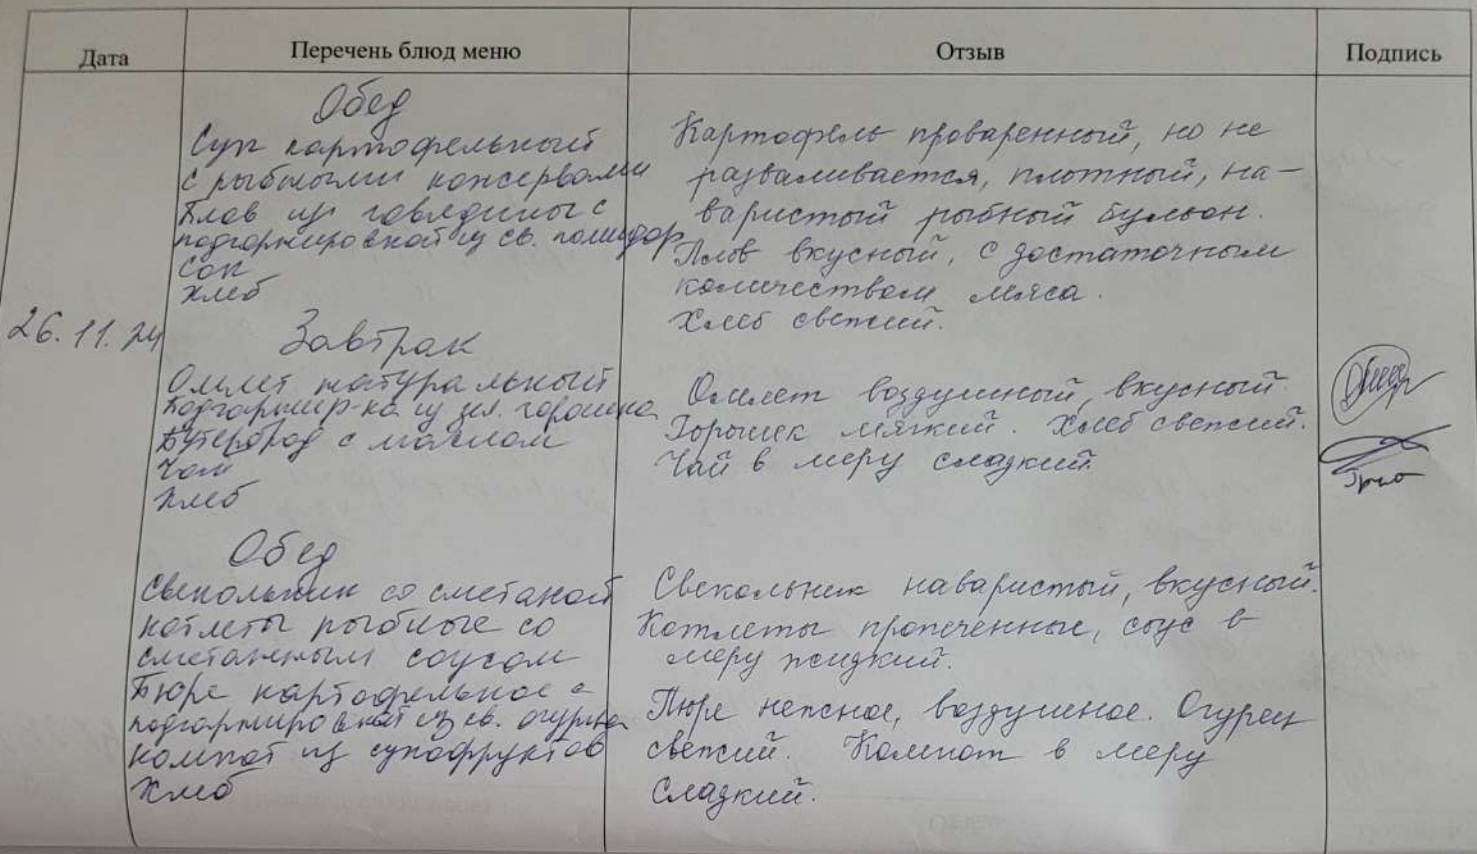 Дата
Перечень блюд меню
Отзыв
Подпись
Обед
Суп картофельный
с рыбными консервами
Плов из говядины с
подгарнировкой из св. помидор
Сок
Хлеб
Картофель проваренный, но не
разваливается, плотный, на-
варистый рыбный бульон.
Плов вкусный, с достаточным
количеством мяса.
Хлеб свежий.
26.11.24
Завтрак
Омлет натуральный
Подгарнир-ка из зел. горошка
Бутерброд с маслом
Чай
Хлеб
Омлет воздушный, вкусный.
Горошек мягкий. Хлеб свежий.
Чай в меру сладкий.
Обед
Свекольник со сметаной
Котлеты рыбные со
сметанным соусом
Пюре картофельное с
подгарнировкой из св. огурца
Компот из сухофруктов
Хлеб
Свекольник наваристый, вкусный.
Котлеты пропеченные, соус в
меру жидкий.
Пюре нежное, воздушное. Огурец
свежий. Компот в меру
сладкий.